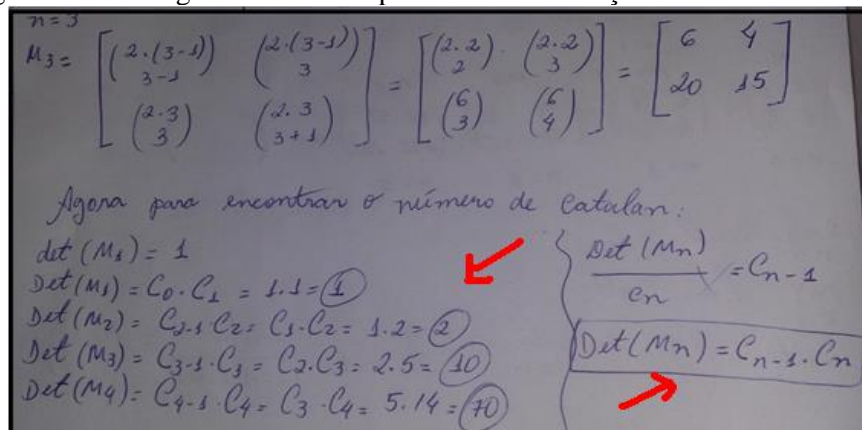 n=3
M₃ = [(2·(3-1) / 3-1) (2·(3-1) / 3) ; (2·3 / 3) (2·3 / 3+1)] = [(2·2 / 2) (2·2 / 3) ; (6 / 3) (6 / 4)] = [6 4 ; 20 15]
Agora para encontrar o número de Catalan:
det (M₁) = 1
Det (M₁) = C₀·C₁ = 1.1 = 1
Det (M₂) = C₂₋₁ C₂ = C₁·C₂ = 1.2 = 2
Det (M₃) = C₃₋₁·C₃ = C₂.C₃ = 2.5 = 10
Det (M₄) = C₄₋₁·C₄ = C₃·C₄ = 5.14 = 70
Det (Mn) / Cn = Cn-1
Det (Mn) = Cn-1·Cn